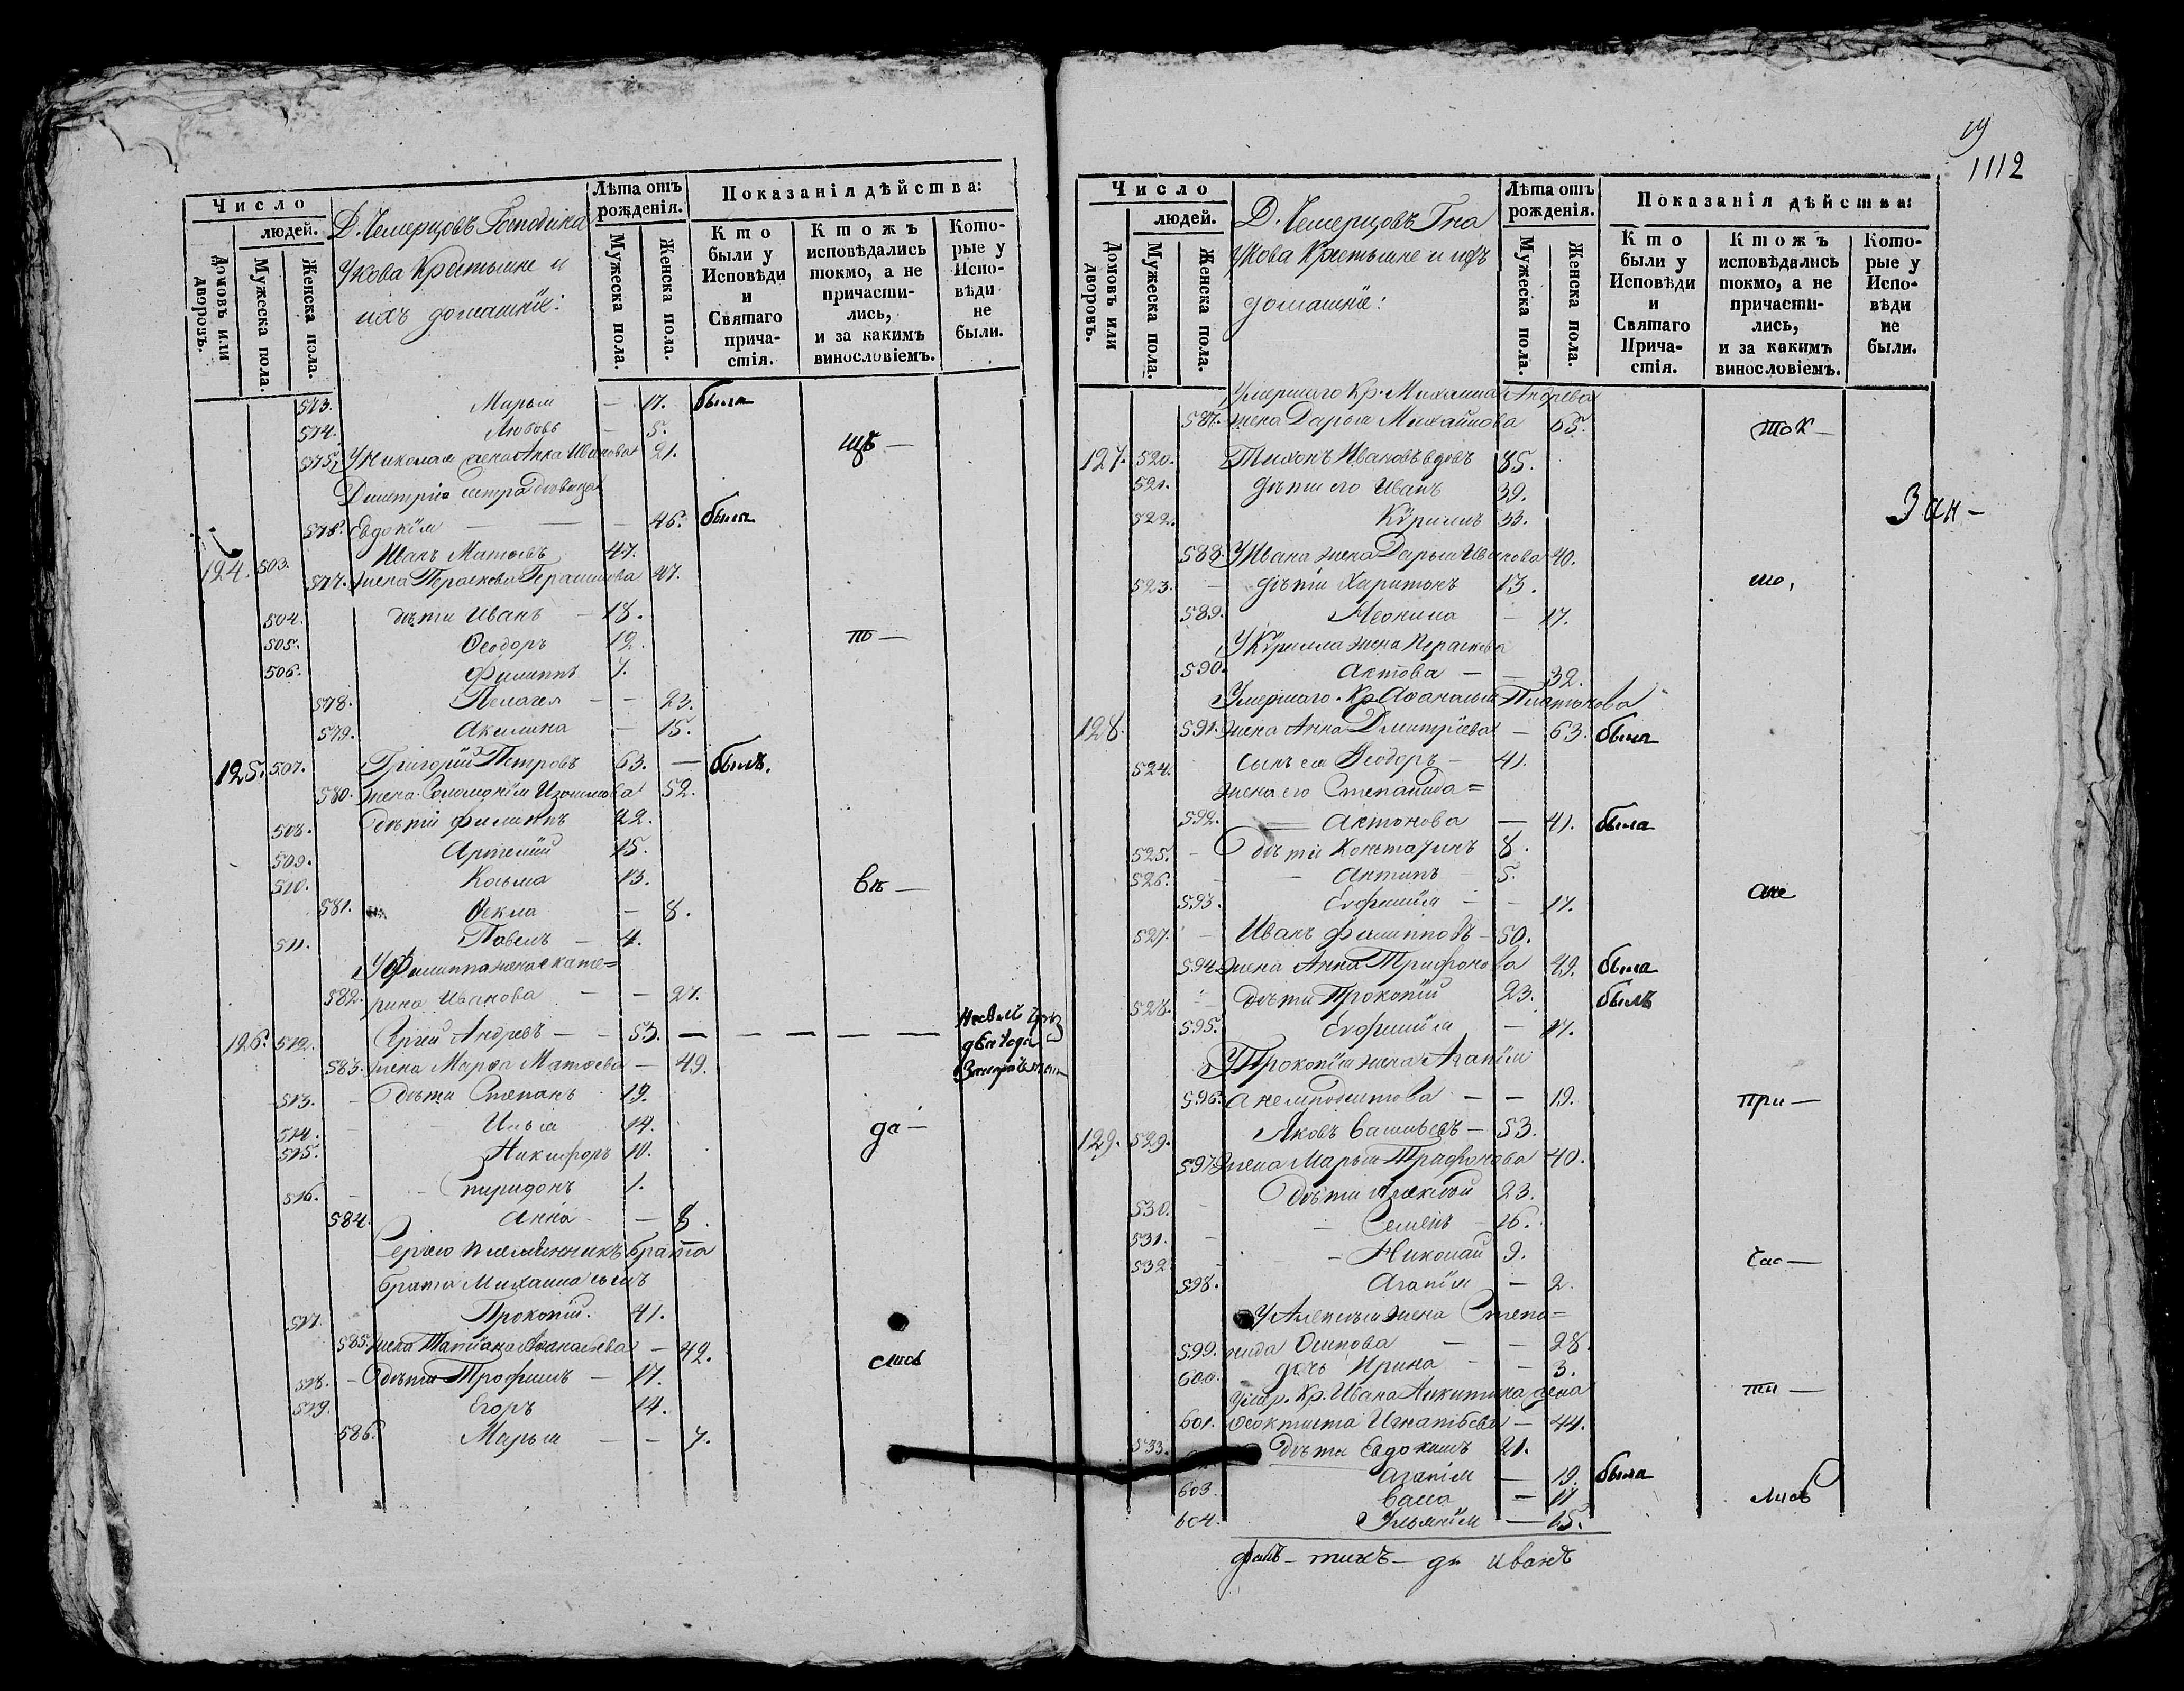 Число
людей.
Домовъ или дворовъ.
Мужеска пола.
Женска пола.
Д. Чемерцовъ Господина
Укова Крѣстьяне и
ихъ домашніе:
Лѣта отъ рожденія.
Мужеска пола.
Женска пола.
Показанія дѣйства:
Кто были у Исповѣди и Святаго причастія.
Ктожъ исповѣдались токмо, а не причастились, и за какимъ винословіемъ.
Которые у Исповѣди не были.
573. Марья — 17. была
574. Любовь — 5.
575. У Николая жена Анна Иванова 21.
Димитрія сестра вдовица
576. Евдокія — 46. была
124. 503. Иванъ Матѳевъ 47.
577. жена Параскева Герасимова 47.
504. дѣти Иванъ — 18.
505. Ѳеодоръ 12.
то —
506. Филиппъ 7.
578. Пелагея — — 23.
579. Акилина — 15.
125. 507. Григорій Петровъ 63. — былъ.
580. жена Соломонія Изотова 52.
508. дѣти Филиппъ 22.
509. Артемій 15.
510. Косьма 13.
581. Ѳекла — 8.
511. Павелъ — 4.
У Филиппа жена екате=
582. рина Иванова — — 27.
126. 512. Сергей Андревъ — — 53. — — — — —
два года
583. жена Марѳа Матѳева — 49.
513. — дѣти Степанъ 19.
514. Илья 14.
да —
515. Никифоръ 10.
516. Спиридонъ 1.
584. Анна — 8.
Сергею племянникъ брата
брата Михаила сынъ
517. Прокопій. 41.
585. жена Татіана Аѳанасьева — 42.
лись
518. — дѣти Трофимъ — 17.
519. Егоръ 14.
586. Марья — — 7.
1112
Число
людей.
Домовъ или дворовъ.
Мужеска пола.
Женска пола.
Д. Чемерцовъ Гна
Укова Крѣстьяне и ихъ
домашніе:
Лѣта отъ рожденія.
Мужеска пола.
Женска пола.
Показанія дѣйства:
Кто были у Исповѣди и Святаго Причастія.
Ктожъ исповѣдались токмо, а не причастились, и за какимъ винословіемъ.
Которые у Исповѣди не были.
Умершаго Кр. Михаила Андрева
587. жена Дарья Михайлова 65.
ток —
127. 520. Тихонъ Ивановъ вдовъ 85.
521. дѣти его Иванъ 39.
522. Кѵрилъ 33.
588. У Ивана жена Дарья Иванова 40.
523. — дѣти Харитонъ 13.
мо,
589. Неонила — 17.
У Кѵрилла жена Параскева
590. — — 32.
Умершаго Кр. Аѳанасья Платонова
128. 591. жена Анна Димитріева — 63. была
524. сынъ ея Ѳеодоръ — 41.
жена его Степанида=
592. Антонова — 41. была
525. — дѣти 8.
526. Антипъ 5.
ане
593. Евфимія — — 17.
527. — Иванъ Филипповъ — 50.
594. жена Анна Трифонова 49. была
528. дѣти Прокопій 23. былъ
595. Евфимія — 17.
У Прокопія жена Агапія
596. — — 19.
при —
129. 529. Яковъ Васильевъ — 53.
597. жена Марья Трифонова 40.
530. дѣти Алексѣй 23.
531. Семенъ — 16.
532. — Николай 9.
час —
598. Агапія — 2.
У Алексѣя жена Степа=
599. нида Осипова — — 28.
600. дочь Ирина — — 3.
Умер. Кр. Ивана Никитина жена
ти —
601. Ѳеоктиста Игнатьева — 44.
533. дѣти Евдокимъ 21.
Агапія — 19. была
603. Васса — 17
лись
604. Ульянія — 15.